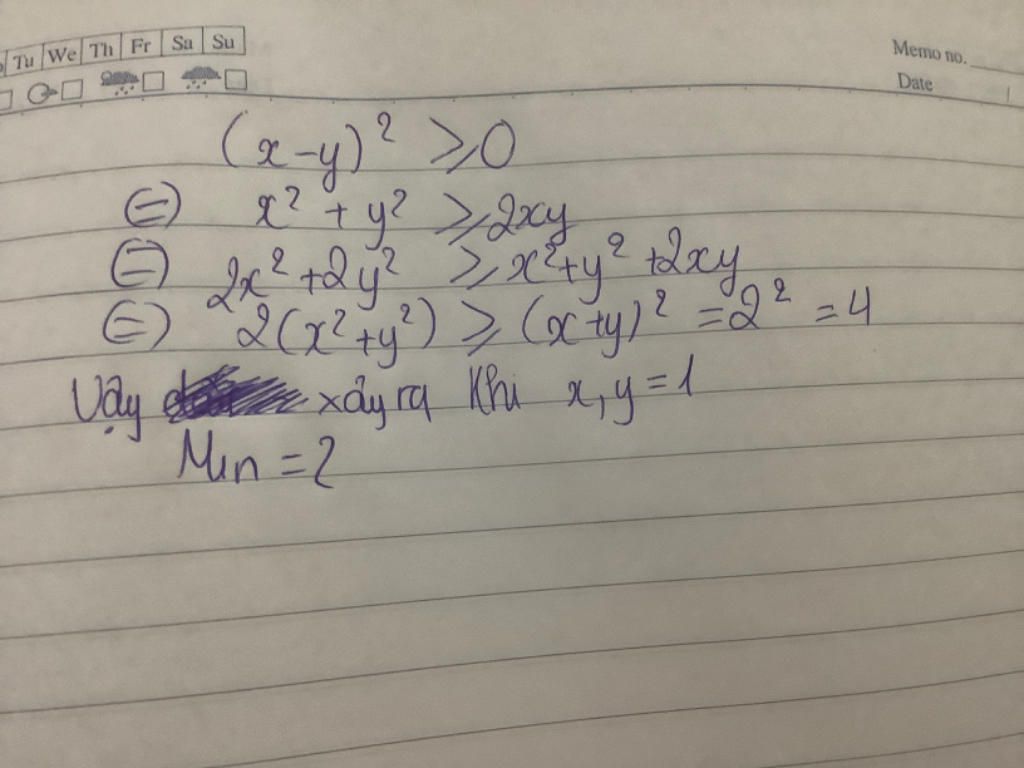 Tu We Th Fr Sa Su
Memo no.
Date
(x-y)² ⩾0
⇔ x² + y² ⩾2xy
⇔ 2x² +2y² ⩾x²+y² +2xy
⇔ 2(x²+y²) ⩾ (x+y)² =2² =4
Vậy xảy ra Khi x,y=1
Min =2